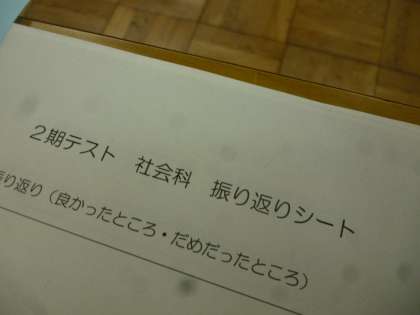 2期テスト 社会科 振り返りシート
振り返り（良かったところ・だめだったところ）